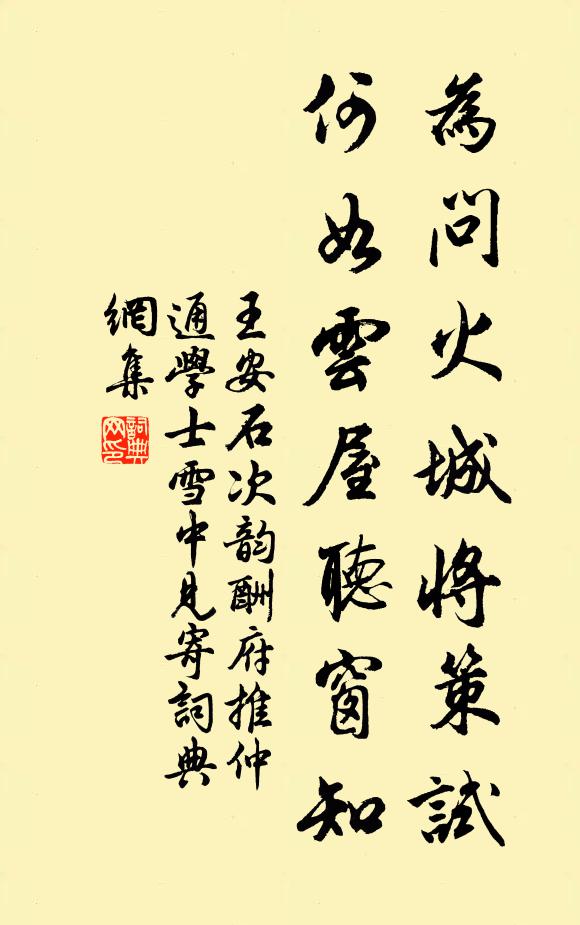 為問火城將策試
何如雲屋聽窗知
王安石次韵酬府推仲
通學士雪中見寄詞典
網集
詞典
网印